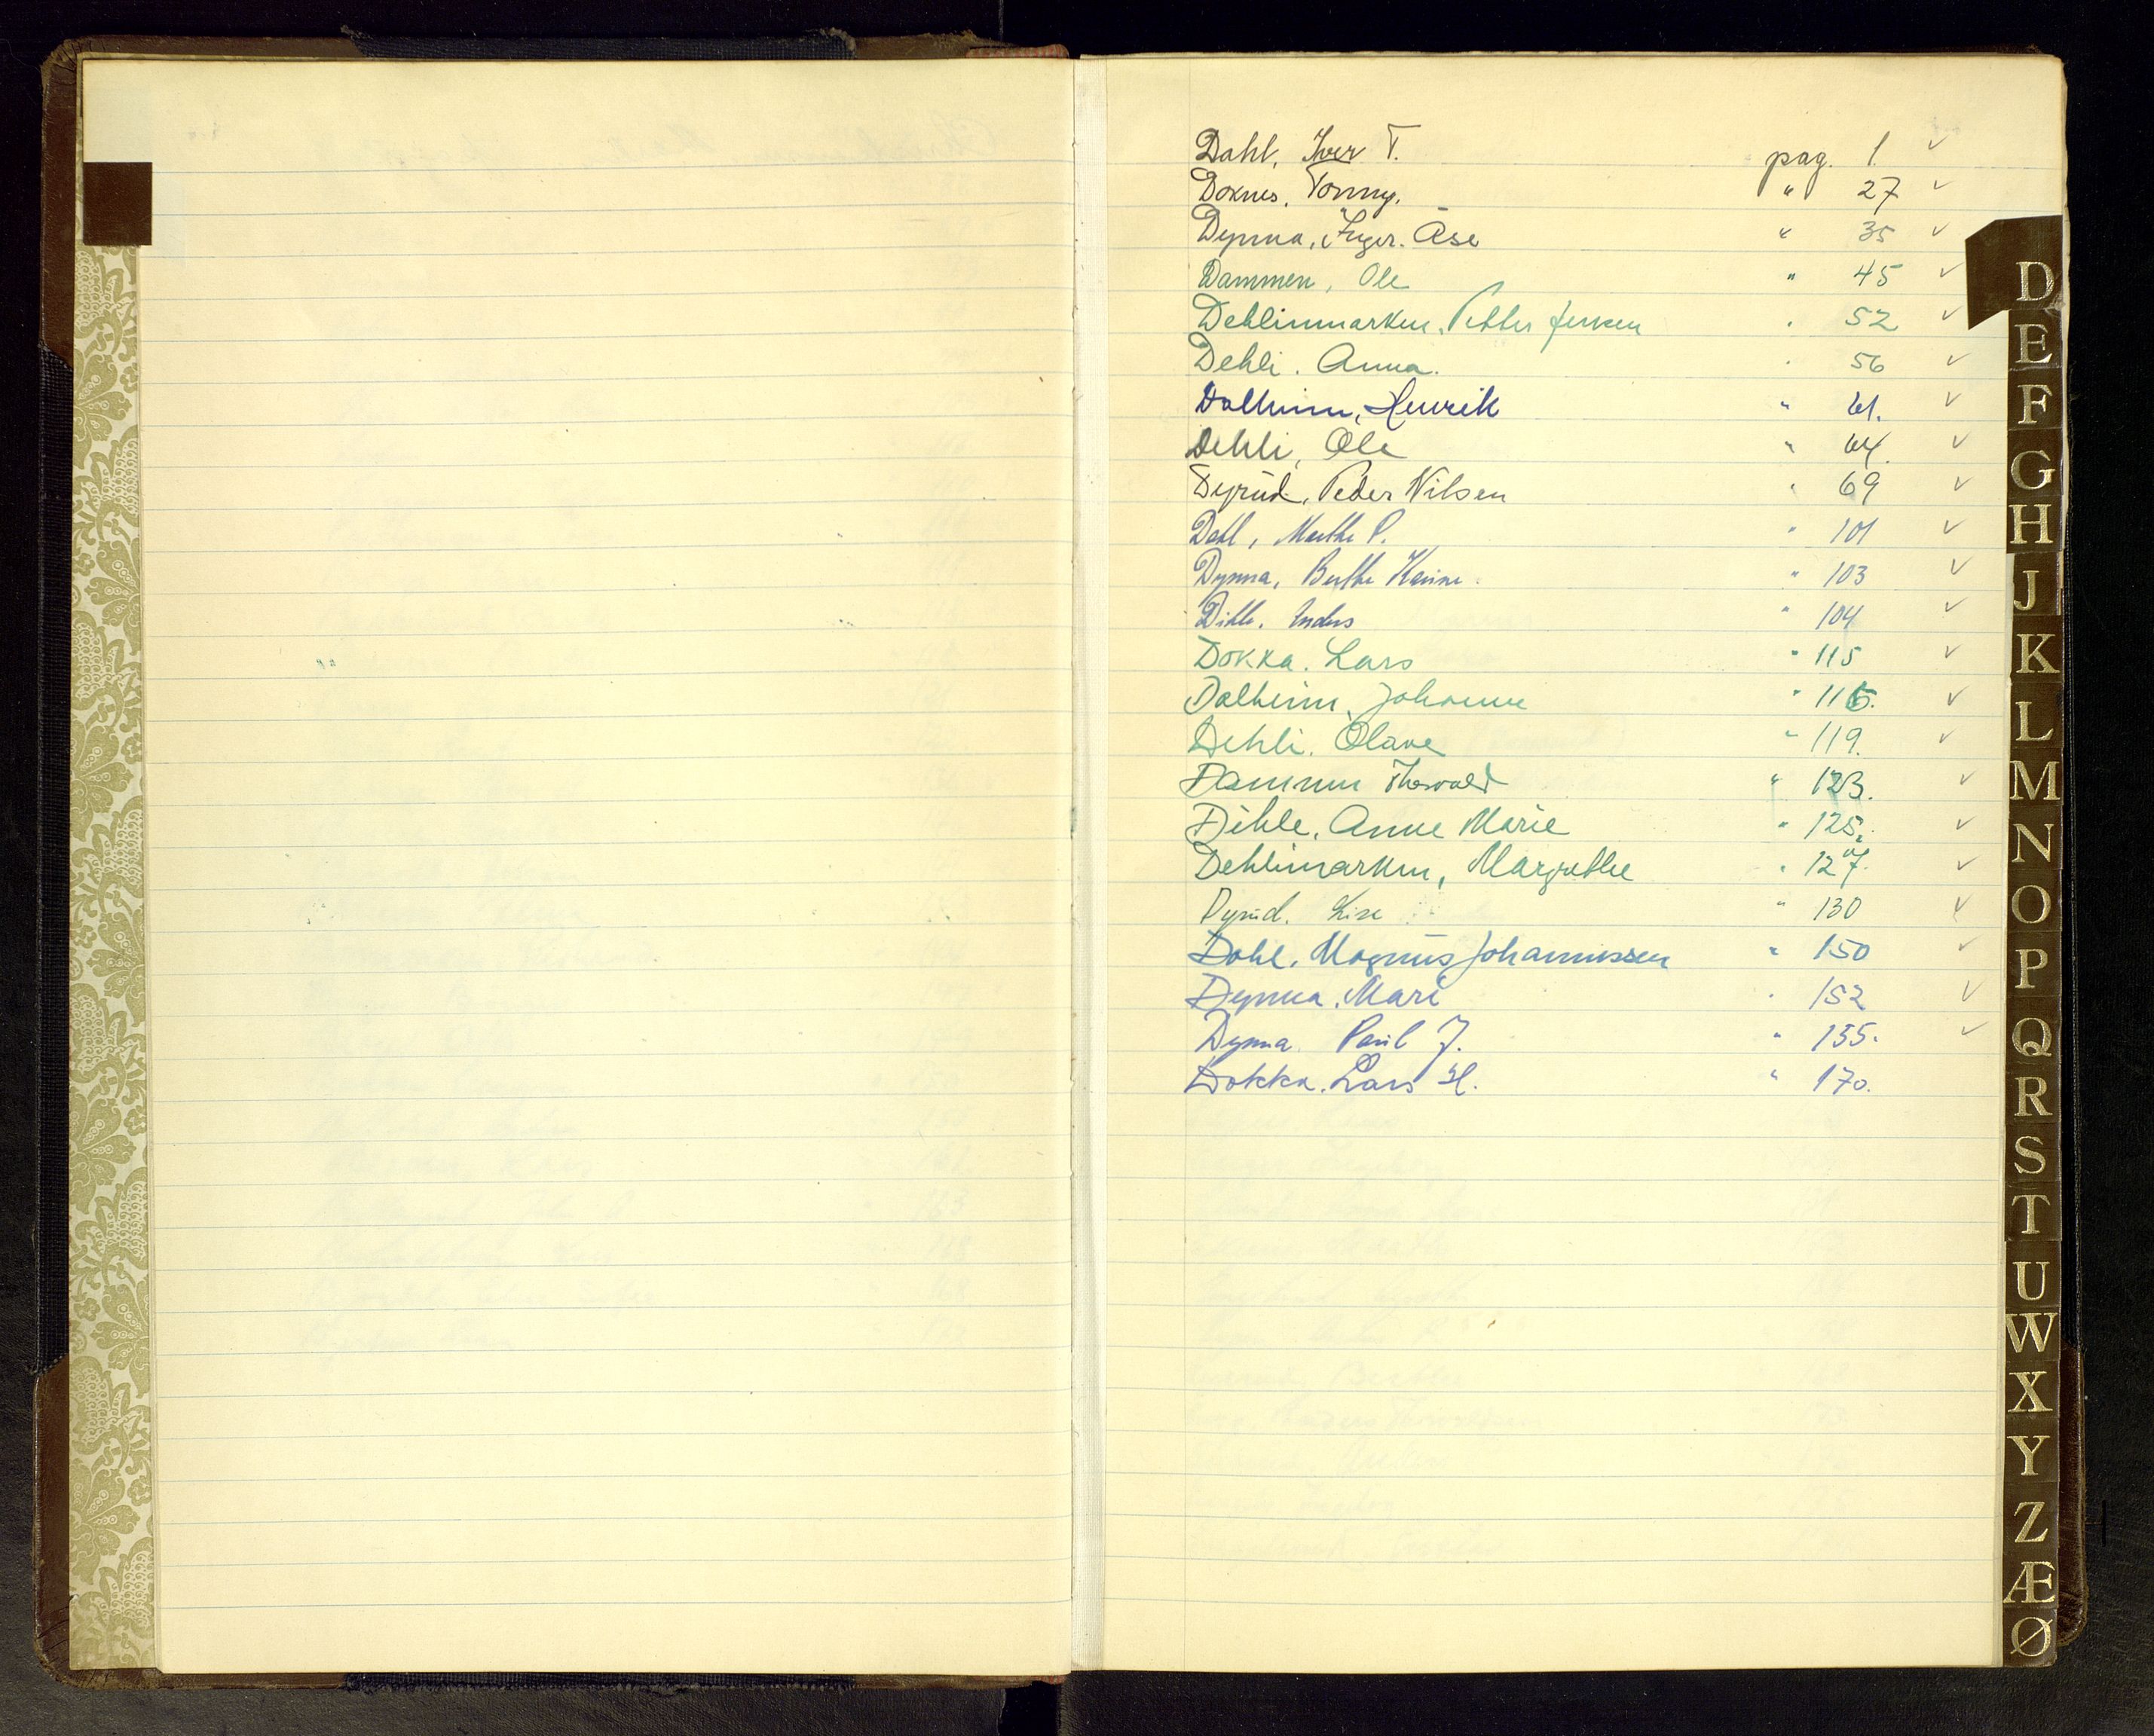 Dahl, Iver T. pag. 1 ✓
Doknes, Tonny. " 27 ✓
Dynna, Inger Åse " 35 ✓
Dammen, Ole " 45 ✓
Dehlinmarken, Petter Jensen " 52 ✓
Dehli. Anna. " 56 ✓
Dalheim, Henrik " 61. ✓
Dehli, Ole " 64. ✓
Dyrud, Peder Nilsen " 69 ✓
Dahl, Marthe P. " 101 ✓
Dynna, Berthe Karine. " 103 ✓
Dihle. Anders " 104 ✓
Dokka. Lars " 115 ✓
Dalheim, Johanne " 116. ✓
Dehli. Olave " 119. ✓
Dammen Thorvald " 123. ✓
Dihle, Anne Marie " 125. ✓
Dehlimarken, Margrethe " 127. ✓
Dyrud. Lise " 130 ✓
Dahl. Magnus Johannessen " 150 ✓
Dynna. Mari " 152 ✓
Dynna Paul J. " 155. ✓
Dokka. Lars H. " 170.
D
E
F
G
H
J
K
L
M
N
O
P
Q
R
S
T
U
W
X
Y
Z
Æ
Ø